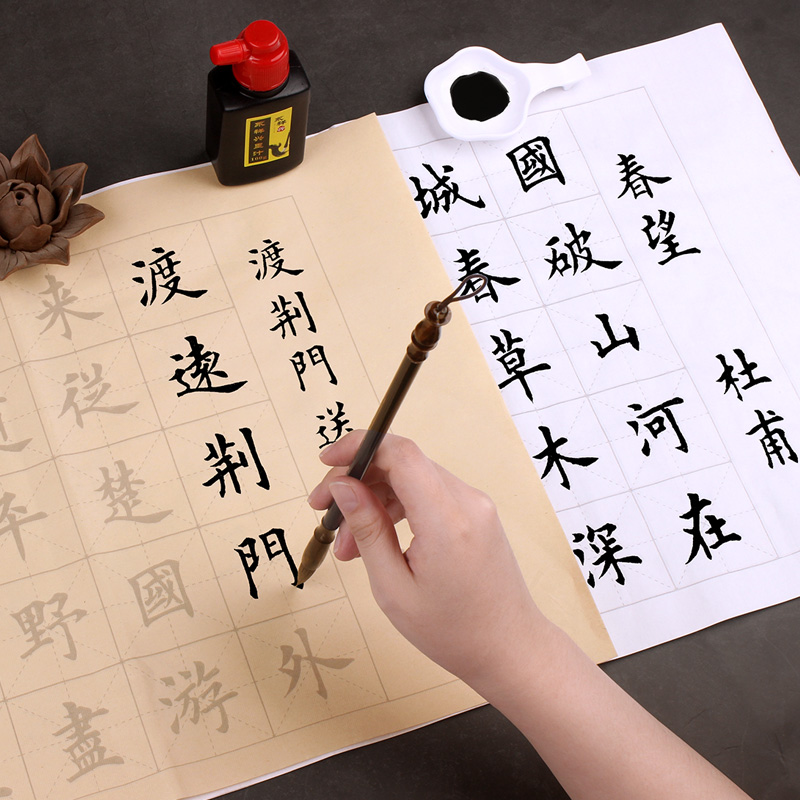 春望
杜甫
國破山河在
城春草木深
渡荆門送
渡遠荆門外
来從楚國游
平野盡